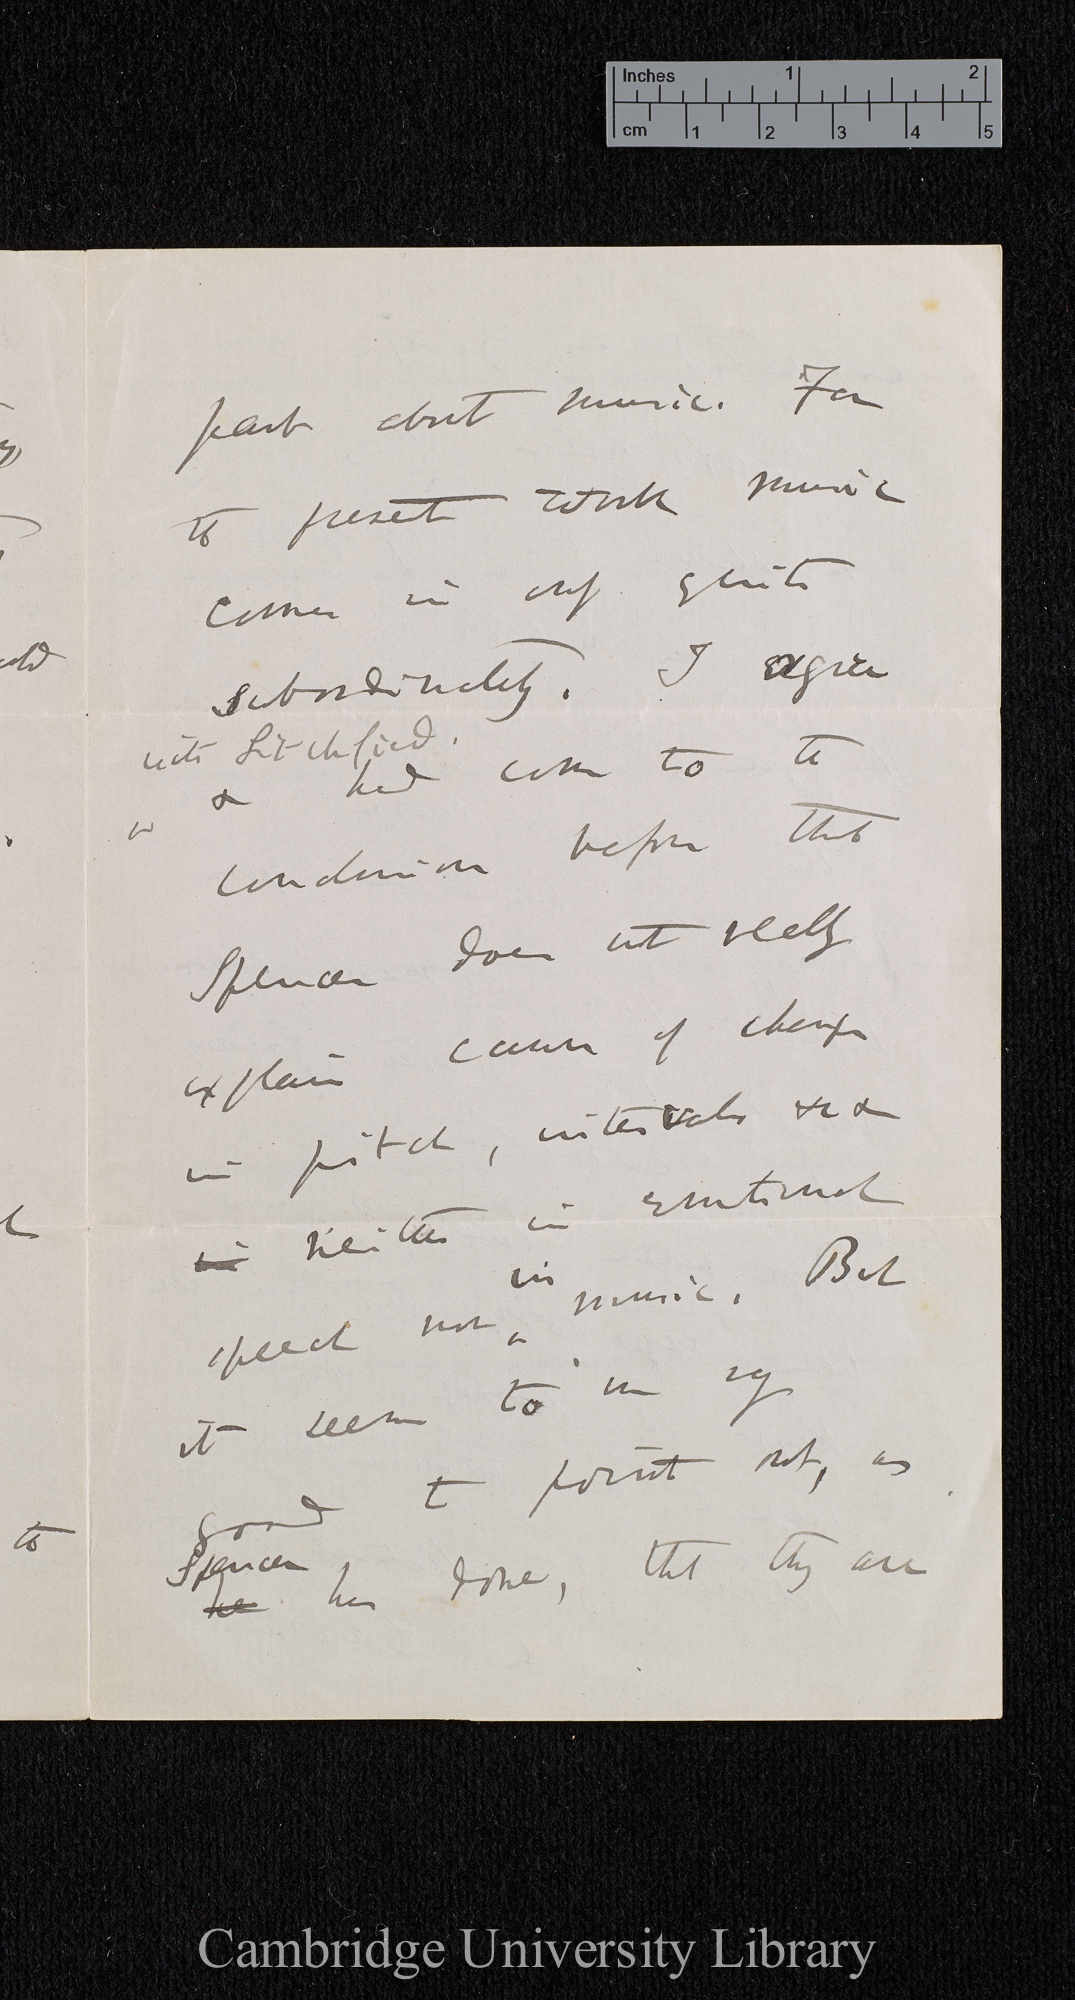 Inches 1 2
cm 1 2 3 4 5
part about music. For
to present work music
comes in only quite
subordinately. I agree
with Litchfield.
& had come to to
conclusion before that
Spencer does not really
explain cause of change
in pitch, intervals &c &
in neither in emotional
speech nor in music. But
it seems to me vy
good to point out, as
Spencer
he has done, that they are
to
Cambridge University Library